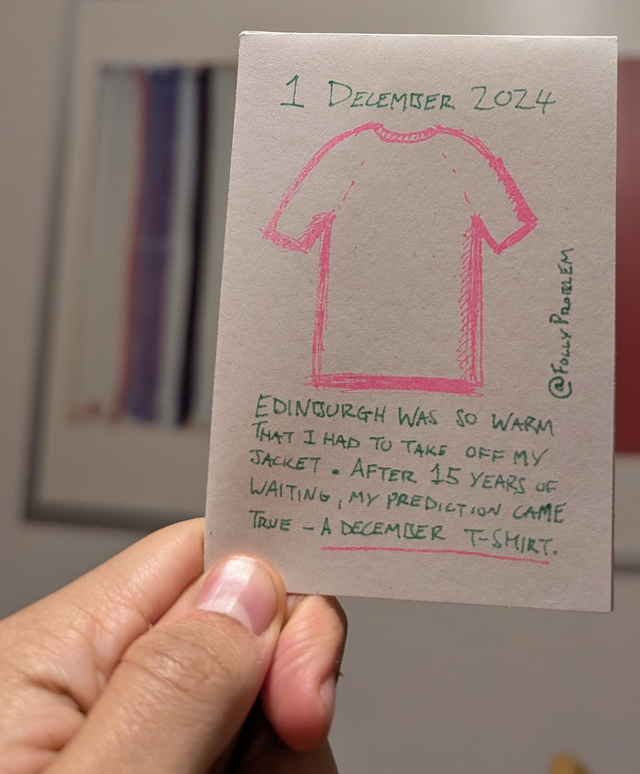 1 DECEMBER 2024
@FOLLYPROBLEM
EDINBURGH WAS SO WARM
THAT I HAD TO TAKE OFF MY
JACKET. AFTER 15 YEARS OF
WAITING, MY PREDICTION CAME
TRUE - A DECEMBER T-SHIRT.